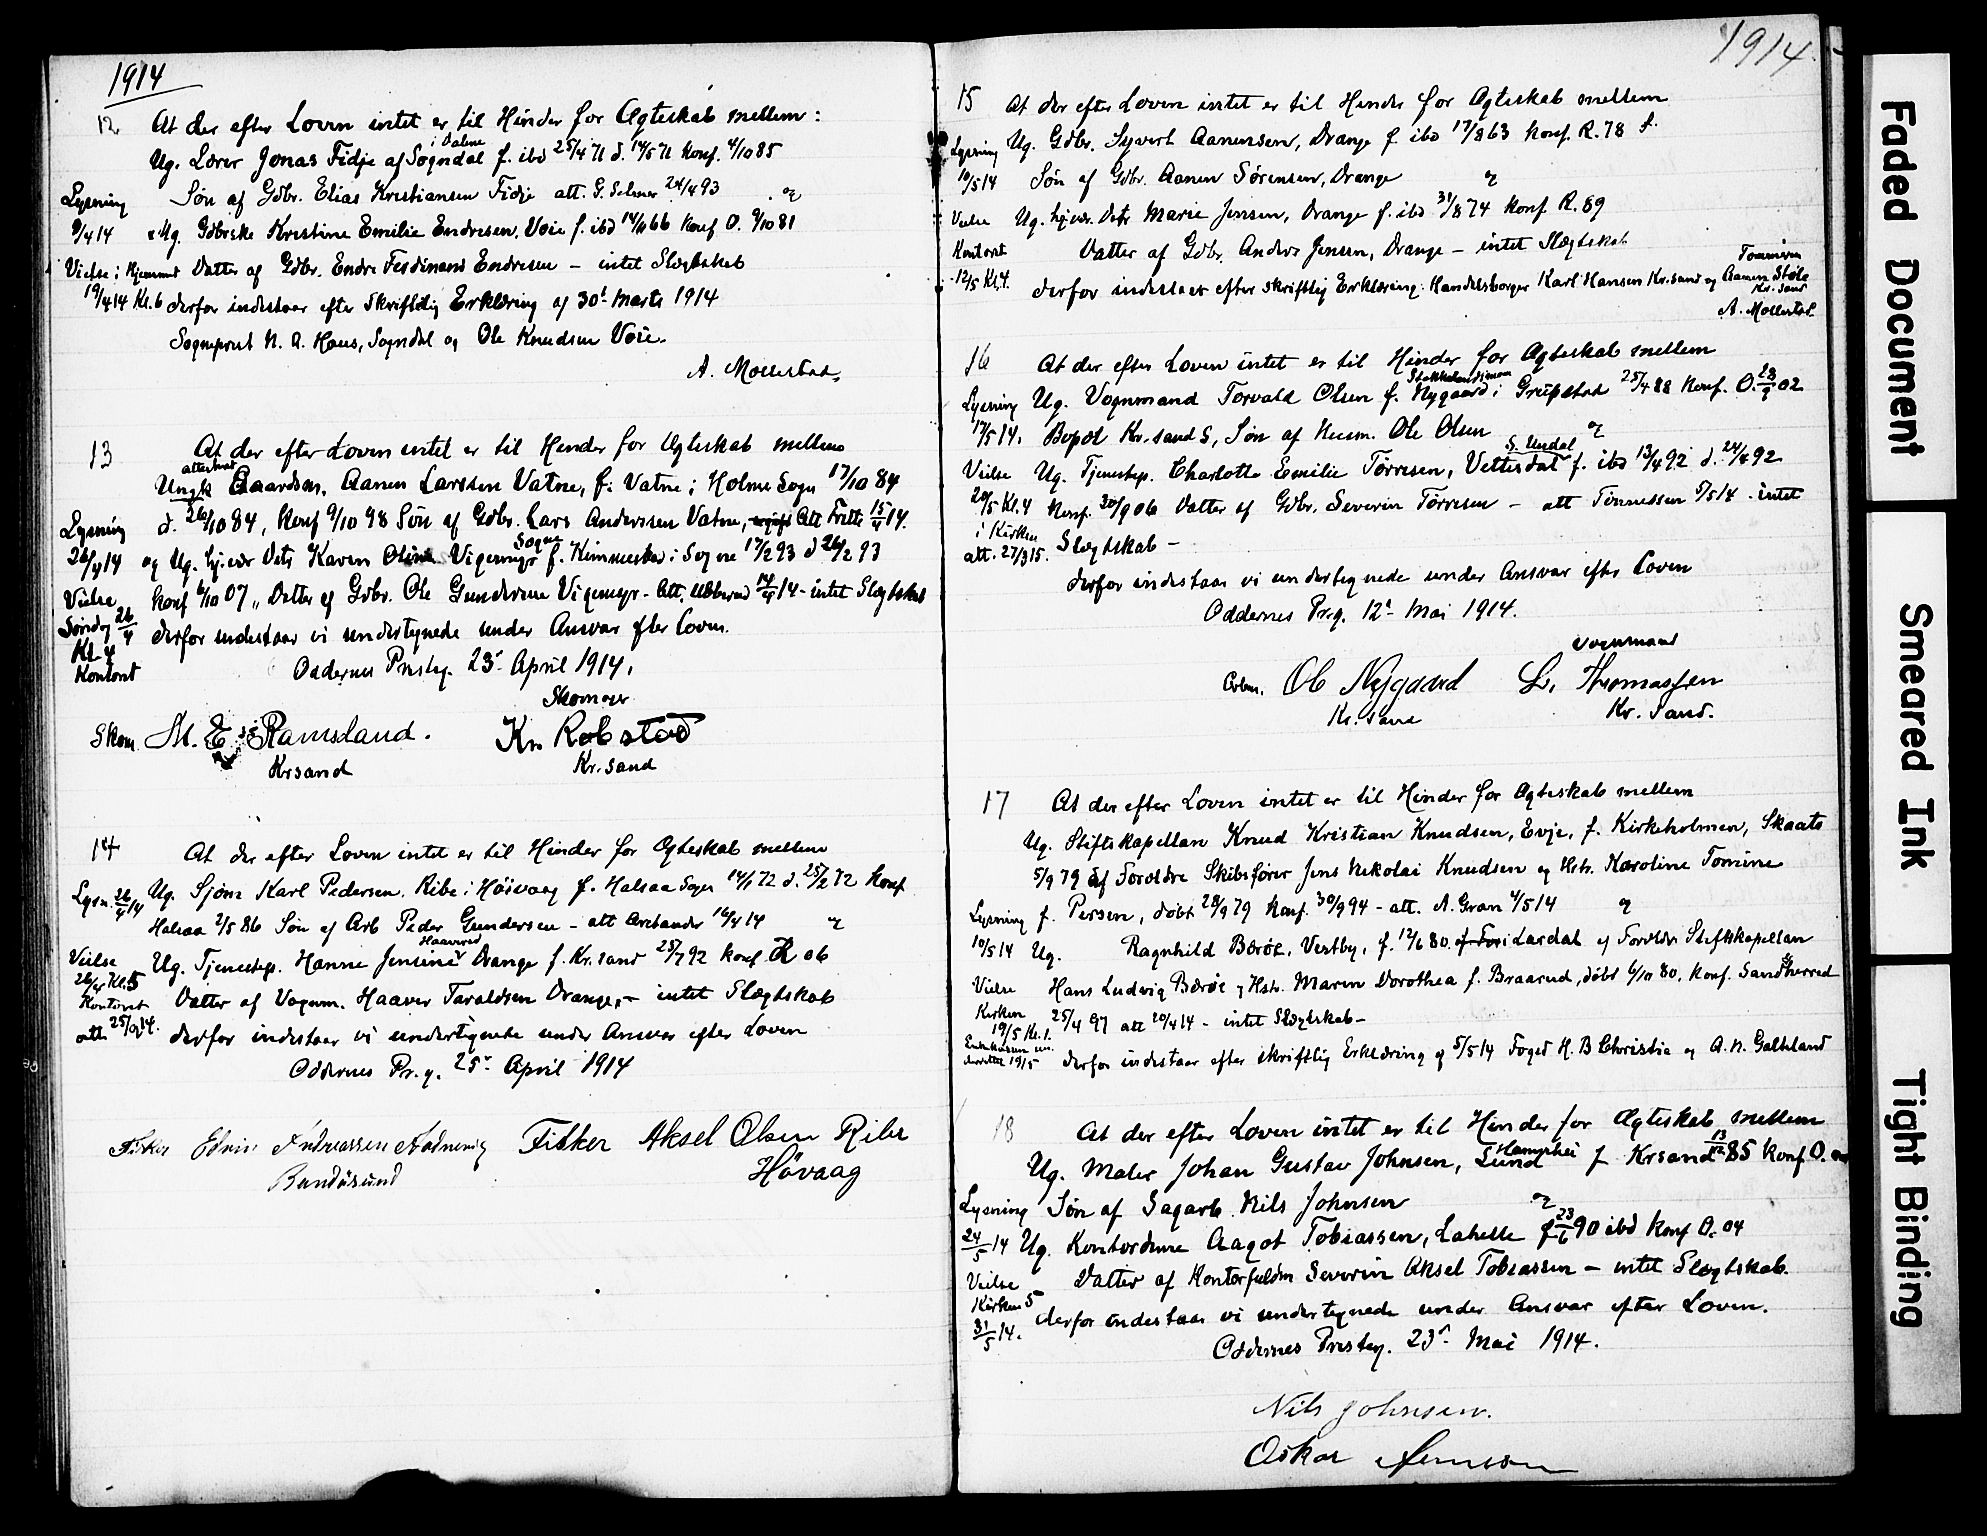 1914
12 At der efter Loven intet er til Hinder for Ægteskab mellem:
Ug. Lærer Jonas Fidje af Sogndal i Dalene f. ibd 25/4 71 d. 14/5 71 konf. 4/10 85
Lysning Søn af Gdbr. Elias Kristiansen Fidje att. G. Selmer 24/4 93 og
9/4 14 Ug. Gdbrske Kristine Emilie Endresen, Voie f. ibd 14/10 66 konf O. 9/10 81
Vielse i Hjemmet Datter af Gdbr. Endre Ferdinand Endresen – intet Slægtskab
19/4 14 Kl. 6 derfor indestaar efter skriftlig Erklæring af 30t Marts 1914
Sogneprest N. A. Haus, Sogndal og Ole Knudsen Voie.
A. Mollestad.
13 At der efter Loven intet er til Hinder for Ægteskab mellem
Ungk Gaardsm. Aanen Larssen Vatne, f. Vatne i Holme Sogn 17/10 84
Lysning d. 26/10 84, konf 9/10 98 Søn af Gdbr. Lars Anderssen Vatne, Att. 15/4 14.
26/4 14 og Ug. hj.vær Datr Karen Oline Vigemyr Sogne f. Kimmestad i Sogne 17/2 93 d 26/2 93
Vielse konf 6/10 07 „ Datter af Gdbr. Ole Gundersen Vigemyr – Att. Ubberud 14/4 14 – intet Slægtskab
Søndag 26/4 derfor indestaar vi undertegnede under Ansvar efter Loven.
Kl. 4
Kontoret Oddernes Presteg. 23' April 1914.
Skomager
Skom. M. E. Ramsland. Kr. Robstad
Krsand Kr. sand
14 At der efter Loven intet er til Hinder for Ægteskab mellem
Lysn. 26/4 14 Ug. Sjøm Karl Pedersen Ribe i Høivaag f. Halsaa Sogn 14/1 72 d. 25/2 72 konf
Halsaa 2/5 86 Søn af Arb Peder Gundersen – att 16/4 14 og
Vielse Ug. Tjenestep. Hanne Jensine Haaversd Drange f. Kr.sand 25/7 92 konf R 06
26/4 Kl. 5
Kontoret Datter af Vognm. Haaver Taraldsen Drange, – intet Slægtskab
att 25/9 14. derfor indestaar vi undertegnede under Ansvar efter Loven
Oddernes Pr.g. 25' April 1914
Fisker Edvin Andreassen Fisker Aksel Olsen Ribe
Randøsund Høvaag
1914.
15 At der efter Loven intet er til Hinder for Ægteskab mellem
Lysning Ug. Gdbr. Syvert Aanensen, Drange f ibd 17/8 63 konf. R. 78 f.
10/5 14 Søn af Gdbr. Aanen Sørensen, Drange og
Vielse Ug. hj.vær. Datr Marie Jensen, Drange f. ibd 31/8 74 konf. R. 89
Kontoret Datter af Gdbr. Anders Jensen, Drange – intet Slægtskab
12/5 Kl. 4. derfor indestaar efter skriftlig Erklæring: Handelsborger Karl Hansen Kr.sand og Tømmerm Aanen Støle Kr. sand
A. Mollestad
16 At der efter Loven intet er til Hinder for Ægteskab mellem
Lysning Ug. Vognmand Torvald Olsen f. Nygaard i Gripstad 25/4 88 konf. O. 28/9 02
17/5 14. Bopæl Kr.sand S, Søn af Husm. Ole Olsen og
Vielse Ug. Tjenestep. Charlotte Emilie Tørresen, Vettesdal S. Undal f. ibd 13/4 92 d. 24/4 92
20/5 Kl. 4 konf. 30/9 06 Datter af Gdbr. Severin Tørresen – att Tønnessen 5/5 14 – intet
i Kirken Slægtskab –
att. 27/3 15.
derfor indestaar vi undertegnede under Ansvar efter Loven
Oddernes Pr.g. 12' Mai 1914.
vognmand
Ole Nygaard L. Thomassen
Kr. sand Kr. Sand.
17 At der efter Loven intet er til Hinder for Ægteskab mellem
Ug. Stiftskapellan Knud Kristian Knudsen, Evje, f. Kirkeholmen, Skaatø
5/9 79 af Forældre Skibsfører Jens Nikolai Knudsen og Hstr. Karoline Tomine
Lysning f. Persen, døbt 28/9 79 konf. 30/9 94 – att. A. Gran 4/5 14 og
10/5 14 Ug. Ragnhild Børøe, Vestby, f. 12/6 80 i Lardal af Forældre Stiftskapellan
Vielse Hans Ludvig Børøe og Hstr. Maren Dorothea f. Braarud, døbt 6/10 80. konf. Sandeherred
Kirken 25/4 97 att 20/4 14 – intet Slægtskab –
19/5 Kl. 1.
19/5 derfor indestaar efter skriftlig Erklæring af 5/5 14 Foged H. B Christie og A. N. Galteland
18 At der efter Loven intet er til Hinder for Ægteskab mellem
Ug. Maler Johan Gustav Johnsen, Lund f Krsand 13/12 85 konf O.
Lysning Søn af Sagarb. Nils Johnsen og
24/5 14 Ug. Kontordame Aagot Tobiassen, Lahelle f 23/6 90 ibd konf O. 04
Vielse Datter af Kontorfuldm Severin Aksel Tobiassen – intet Slægtskab.
Kirken 5
31/5 14. derfor indestaar vi undertegnede under Ansvar efter Loven.
Oddernes Presteg. 23' Mai 1914.
Nils Johnsen.
Oskar
Faded Document
Smeared Ink
Tight Binding